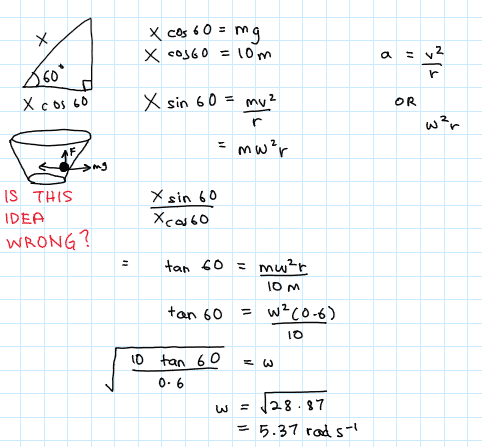 X
60°
X cos 60
F
mg
IS THIS
IDEA
WRONG?
X cos 60 = mg
X cos60 = 10m
X sin 60 = mv²/r
= mω²r
a = v²/r
OR
ω²r
X sin 60/X cos60
= tan 60 = mω²r/10 M
tan 60 = ω²(0.6)/10
√(10 tan 60/0.6) = ω
ω = √28.87
= 5.37 rad s⁻¹